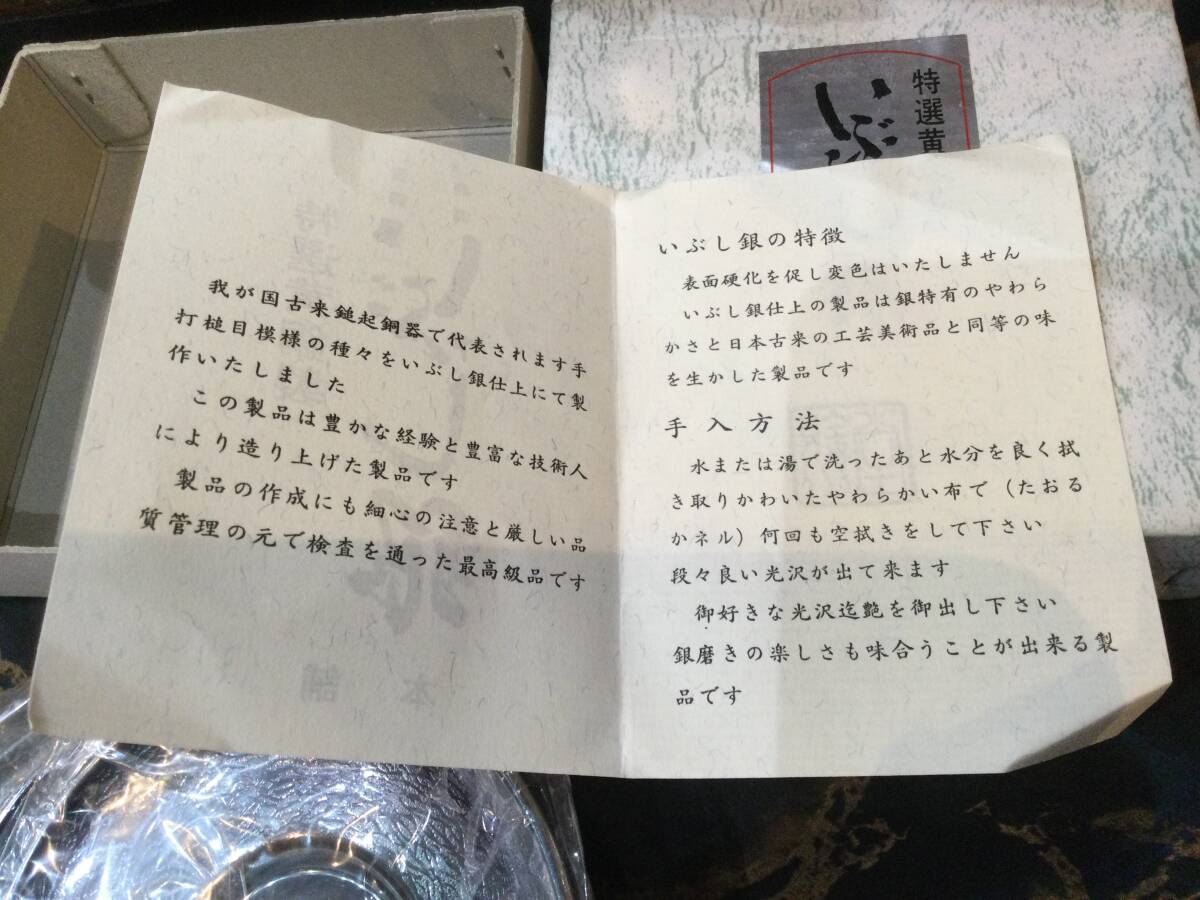 特選黄
いぶ
我が国古来鎚起銅器で代表されます手
打槌目模様の種々をいぶし銀仕上にて製
作いたしました
この製品は豊かな経験と豊富な技術人
により造り上げた製品です
製品の作成にも細心の注意と厳しい品
質管理の元で検査を通った最高級品です
いぶし銀の特徴
表面硬化を促し変色はいたしません
いぶし銀仕上の製品は銀特有のやわら
かさと日本古来の工芸美術品と同等の味
を生かした製品です
手入方法
水または湯で洗ったあと水分を良く拭
き取りかわいたやわらかい布で（たおる
かネル）何回も空拭きをして下さい
段々良い光沢が出て来ます
御好きな光沢迄艶を御出し下さい
銀磨きの楽しさも味合うことが出来る製
品です